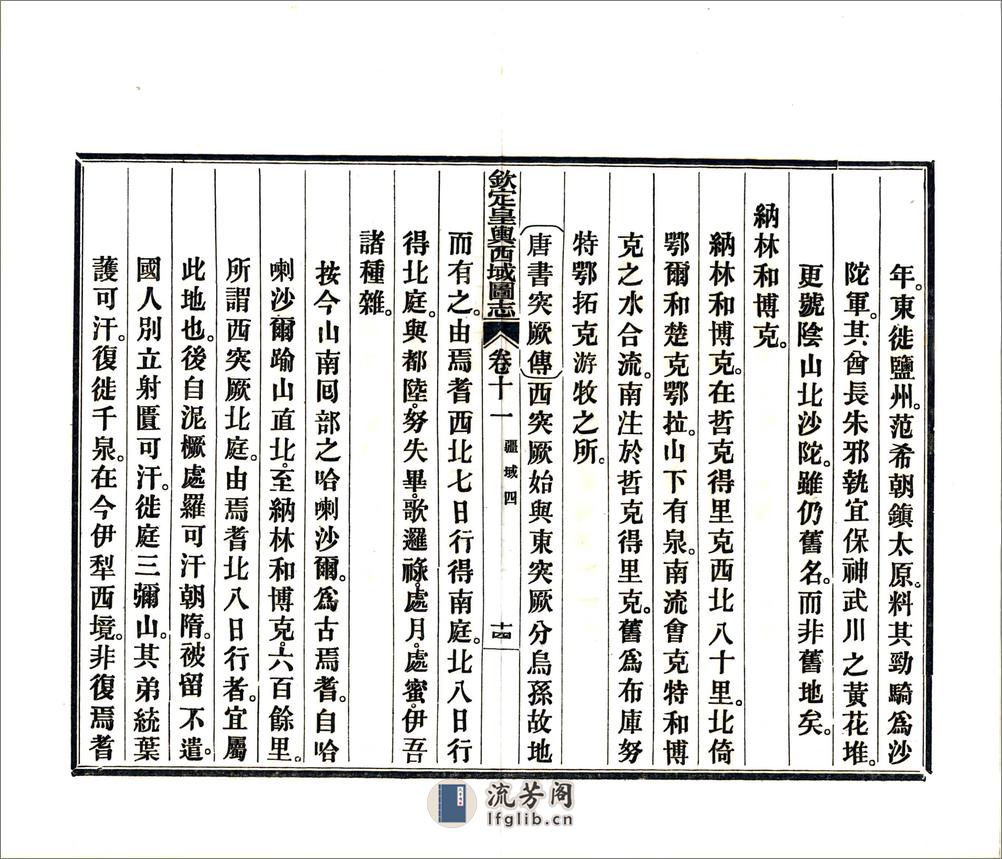 年。東徙鹽州。范希朝鎮太原。料其勁騎爲沙
陀軍。其酋長朱邪執宜保神武川之黃花堆。
更號陰山北沙陀。雖仍舊名。而非舊地矣。
納林和博克。
納林和博克。在哲克得里克西北八十里。北倚
鄂爾和楚克鄂拉。山下有泉。南流會克特和博
克之水合流。南注於哲克得里克。舊爲布庫努
特鄂拓克游牧之所。
唐書突厥傳西突厥始與東突厥分烏孫故地
欽定皇輿西域圖志 卷十一 疆域四 十四
而有之。由焉耆西北七日行得南庭。北八日行
得北庭。與都陸。努失畢。歌邏祿。處月。處蜜。伊吾
諸種雜。
按今山南囘部之哈喇沙爾。爲古焉耆。自哈
喇沙爾踰山直北。至納林和博克。六百餘里。
所謂西突厥北庭。由焉耆北八日行者。宜屬
此地也。後自泥橛處羅可汗朝隋。被留不遣。
國人別立射匱可汗。徙庭三彌山。其弟統葉
護可汗。復徙千泉。在今伊犁西境。非復焉耆
流芳阁
lfglib.cn